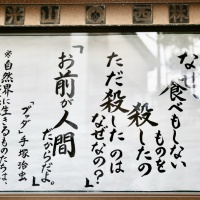 な「食べもしない
ものを
殺したの
ただ殺したのは
なぜなの？」
「お前が人間
だからだよ。」
「ブッダ」手塚治虫
※自然界に生きるものたちは、